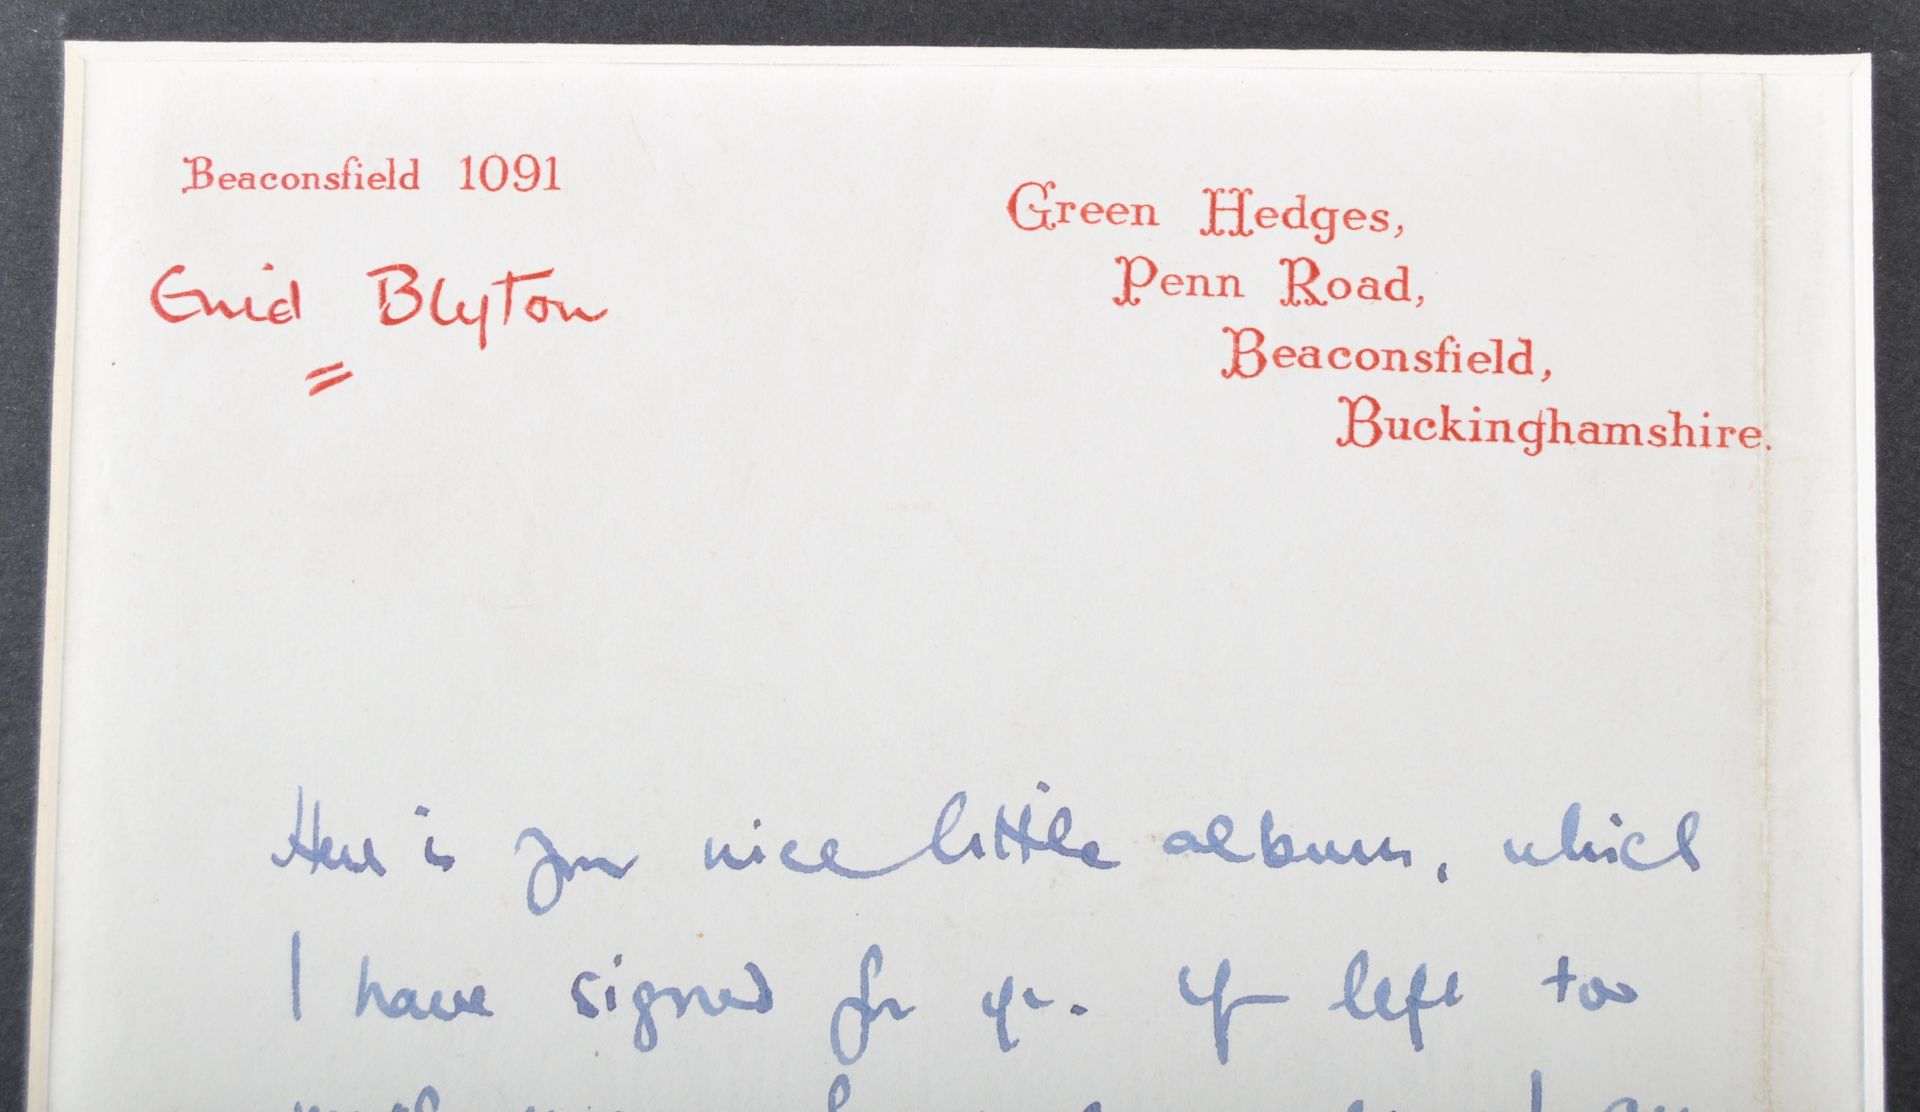 Beaconsfield 1091
Enid Blyton
Green Hedges,
Penn Road,
Beaconsfield,
Buckinghamshire.
Here is your nice little album, which
I have signed for you. You left too